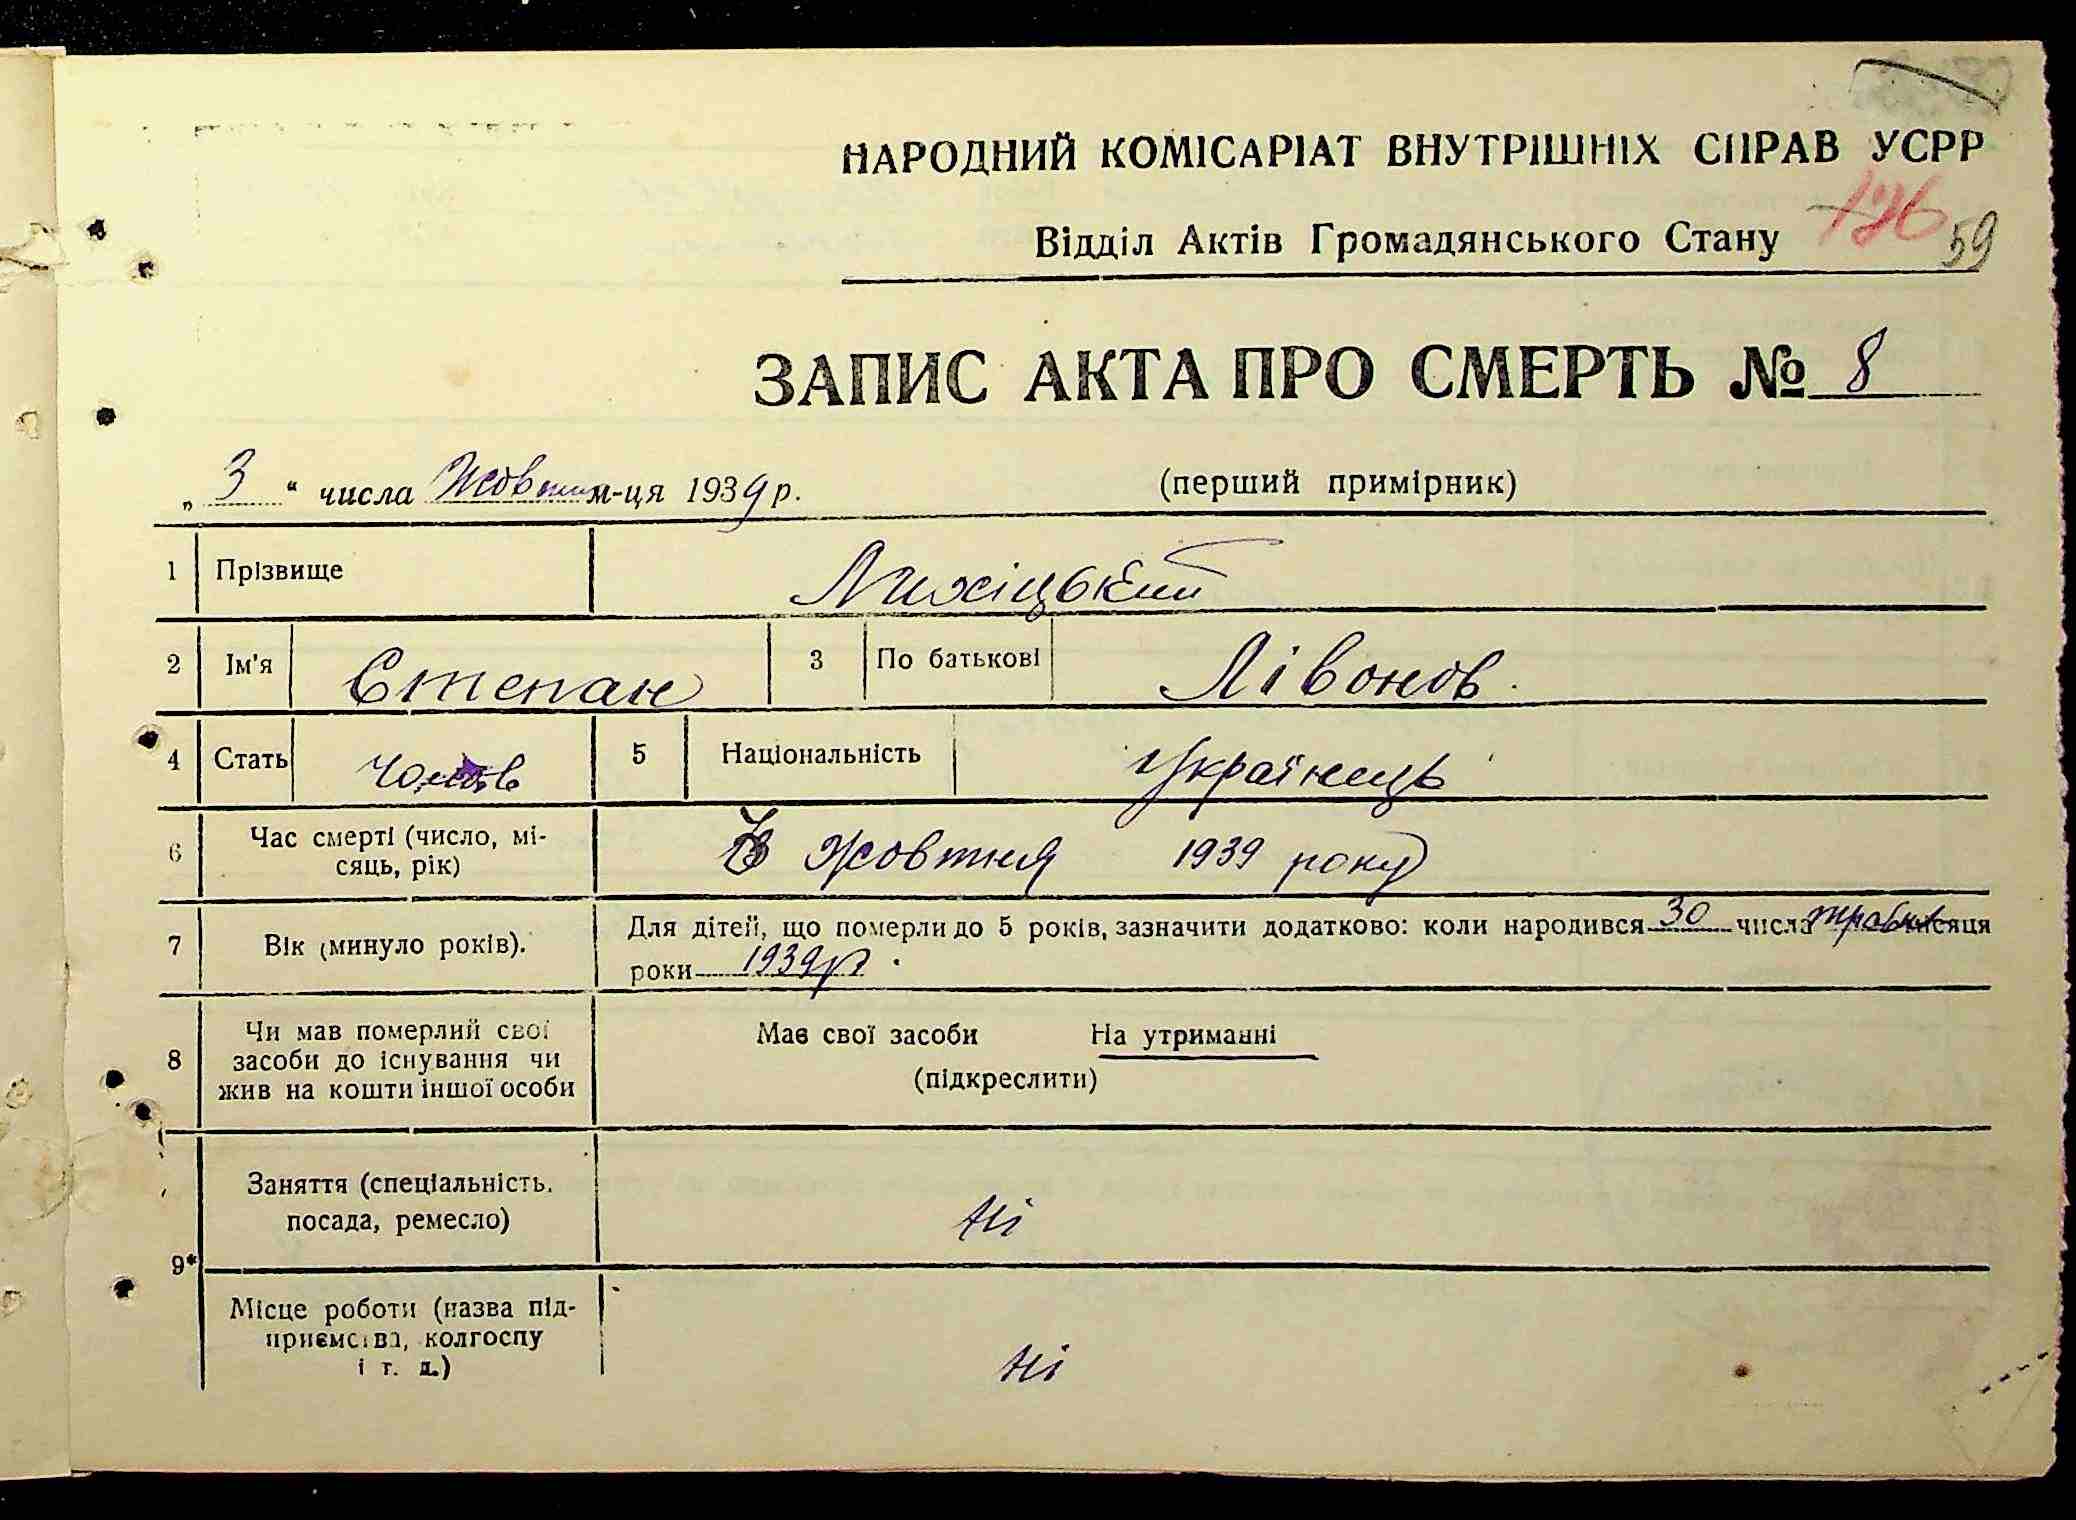 НАРОДНИЙ КОМІСАРІАТ ВНУТРІШНІХ СПРАВ УСРР
126
Відділ Актів Громадянського Стану
59
ЗАПИС АКТА ПРО СМЕРТЬ № 8
„ 3 “ числа Жовтня м-ця 1939 р.
(перший примірник)
1 Прізвище Лихіцький
2 Ім'я Степан 3 По батькові Лівонов.
4 Стать чолов 5 Національність Українець
6 Час смерті (число, мі-
сяць, рік)
жовтня 1939 року
7 Вік (минуло років).
Для дітей, що померли до 5 років, зазначити додатково: коли народився 30 числа травня місяця
роки 1939 р.
8 Чи мав померлий свої
засоби до існування чи
жив на кошти іншої особи
Має свої засоби На утриманні
(підкреслити)
9*
Заняття (спеціальність,
посада, ремесло)
Ні
Місце роботи (назва під-
приємства, колгоспу
і т. д.)
Ні